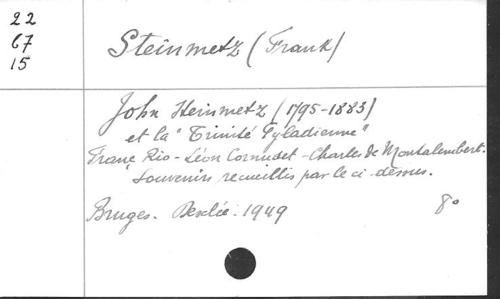 22
67
15
Steinmetz (Frank)
John Steinmetz (1795-1883)
et la "Trinité Pyladienne"
Franç Rio - Léon Cornudet - Charles de Montalembert.
Souvenirs recueillis par le ci-dessus.
Bruges. Desclée. 1949 8°